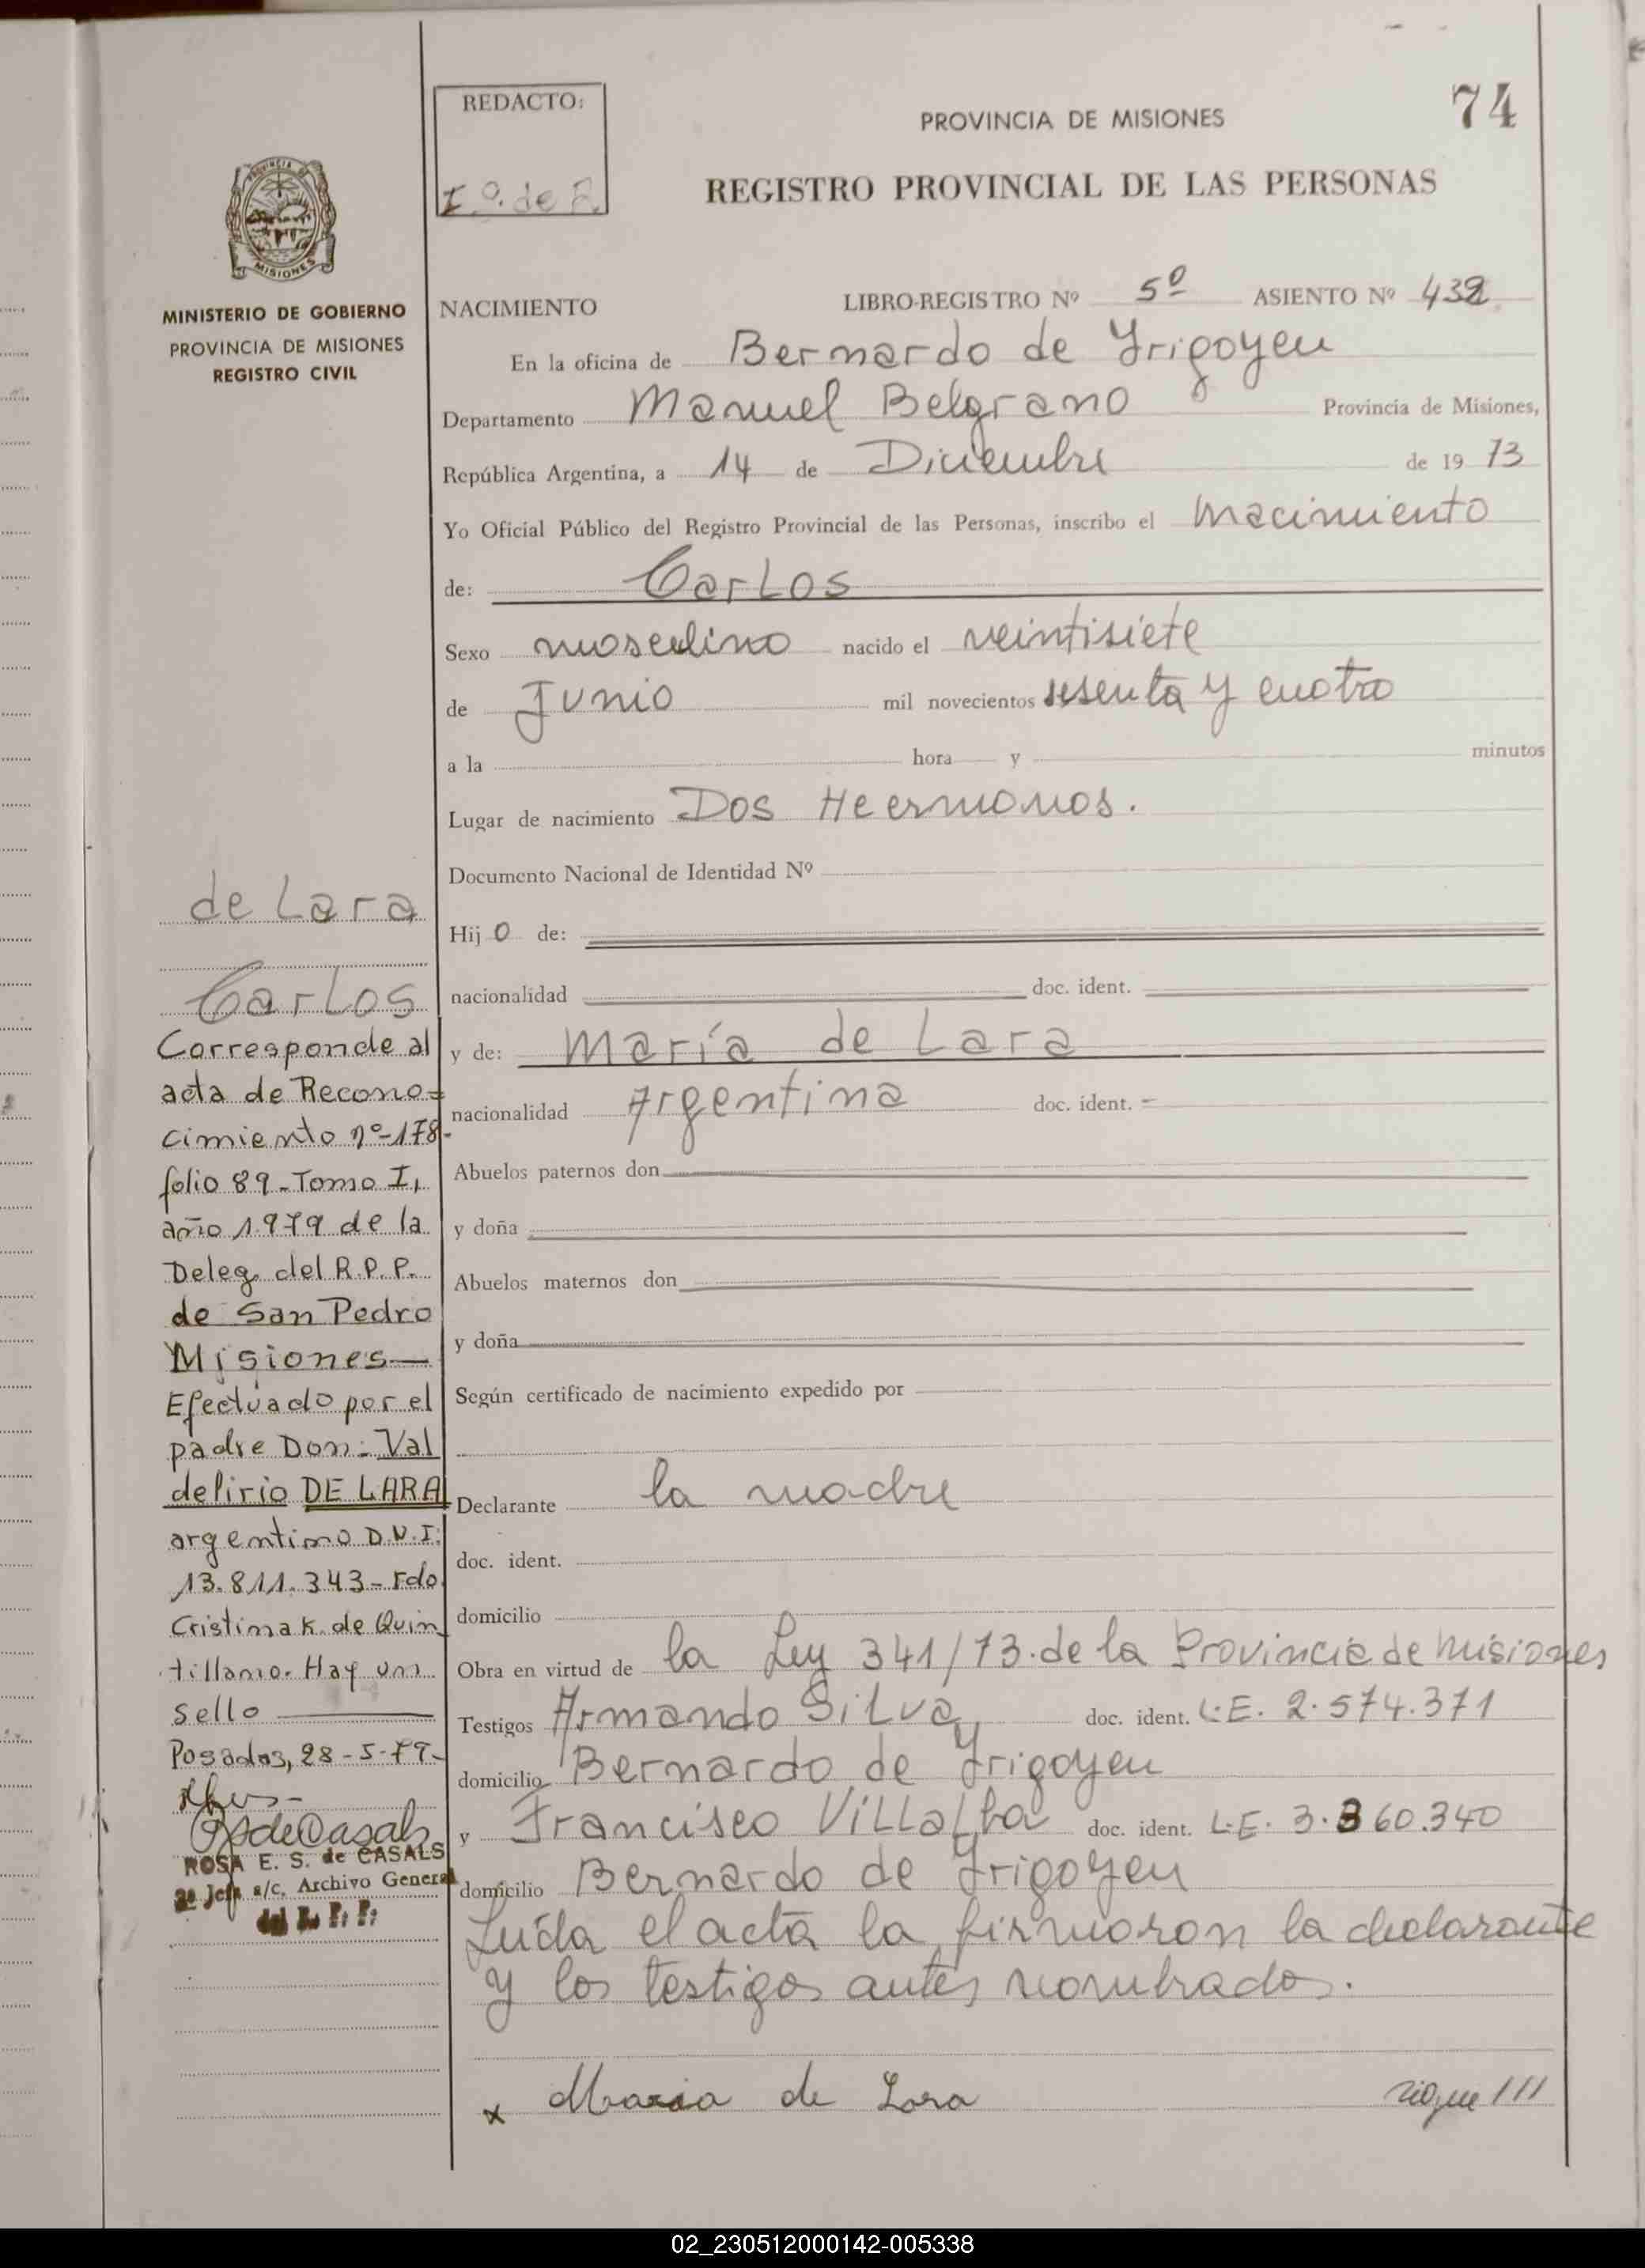 74
REDACTO:
PROVINCIA DE MISIONES
REGISTRO PROVINCIAL DE LAS PERSONAS
MISIONES
MINISTERIO DE GOBIERNO
PROVINCIA DE MISIONES
REGISTRO CIVIL
NACIMIENTO LIBRO-REGISTRO Nº 5º ASIENTO Nº 432
En la oficina de Bernardo de Yrigoyen
Departamento Manuel Belgrano Provincia de Misiones,
República Argentina, a 14 de Diciembre de 1973
Yo Oficial Público del Registro Provincial de las Personas, inscribo el nacimiento
de: Carlos
Sexo masculino nacido el veintisiete
de Junio mil novecientos sesenta y cuatro
a la hora y minutos
Lugar de nacimiento Dos Heermanos.
Documento Nacional de Identidad Nº
Hijo de:
nacionalidad doc. ident.
y de: María de Lara
nacionalidad Argentina doc. ident. -
Abuelos paternos don
y doña
Abuelos maternos don
y doña
Según certificado de nacimiento expedido por
Declarante la madre
doc. ident.
domicilio
Obra en virtud de la Ley 341/73. de la Provincia de Misiones
Testigos Armando Silva doc. ident. L.E. 2.574.371
domicilio Bernardo de Yrigoyen
y Francisco Villalba doc. ident. L.E. 3.360.340
domicilio Bernardo de Yrigoyen
Leída el acta la firmaron la declarante
y los testigos antes nombrados.
x Maria de Lara sigue ///
de Lara
Carlos
Corresponde al
acta de Recono=
cimiento nº-178-
folio 89-Tomo I,
año 1.979 de la
Deleg. del R.P.P.
de San Pedro
Misiones—
Efectuado por el
padre Don: Val
delirio DE LARA
argentino D.N.I:
13.811.343- Fdo.
Cristina K. de Quin
tillano. Hay un
sello
Posadas, 28-5-79-
ROSA E. S. de CASALS
2ª Jefe a/c. Archivo General
del R. P. P.
02_230512000142-005338